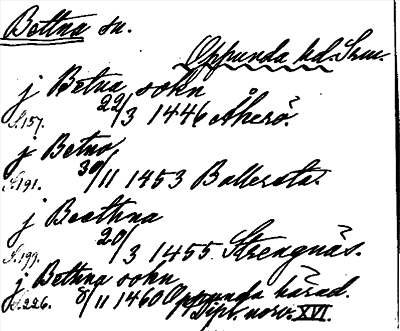 Bettna sn.
Oppunda hd. Srm.
j Betna sokn
S.157. 22/3 1446 Åkerö.
j Betno
S.191. 30/11 1453 Ballersta.
j Beethna
S.199. 20/3 1455. Strengnäs.
j Bethna sokn
S.226. 8/11 1460 Oppunda härad.
Dipl. norv. XVI.